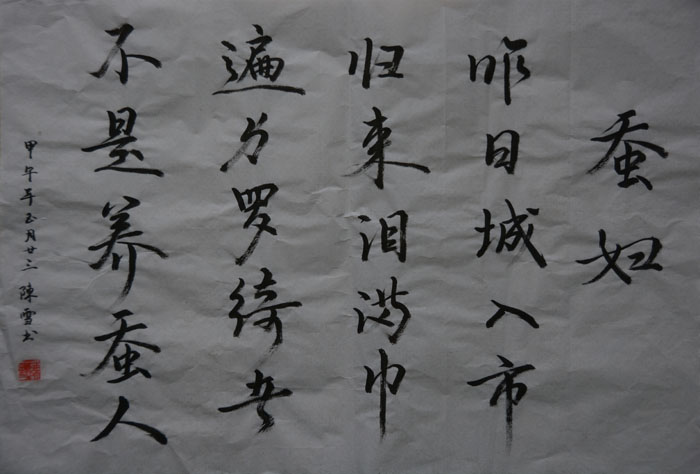 蚕妇
昨日城入市
归来泪满巾
遍身罗绮者
不是养蚕人
甲午年五月廿三 陳雪书